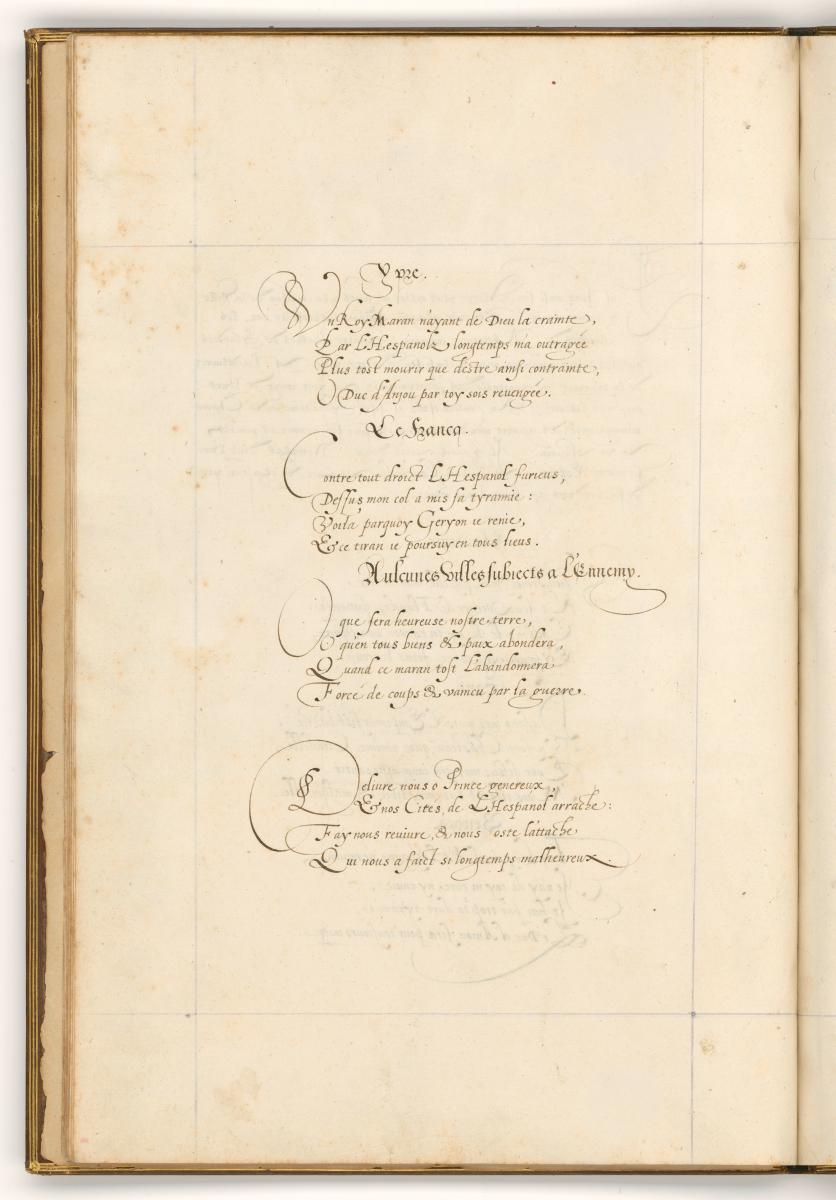 Ypre.
Un Roy Maran n'ayant de Dieu la crainte,
Par L'Hespanolz longtemps m'a outragée
Plus tost mourir que d'estre ainsi contrainte,
O Duc d'Anjou par toy sois revengée.
Le Francq.
Contre tout droict L'Hespanol furieus,
Dessus mon col a mis sa tyrannie :
Voila parquoy Geryon ie renie,
Et ce tiran ie poursuy en tous lieus.
Aulcunes Villes subiects a L'Ennemy.
O que sera heureuse nostre terre,
O qu'en tous biens & paix abondera,
Quand ce maran tost L'abandonnera
Forcé de coups & vaincu par la guerre.
Delivre nous o Prince genereux,
Et nos Cités, de L'Hespanol arrache:
Fay nous reuivre, & nous oste l'attache
Qui nous a faict si longtemps malheureux.